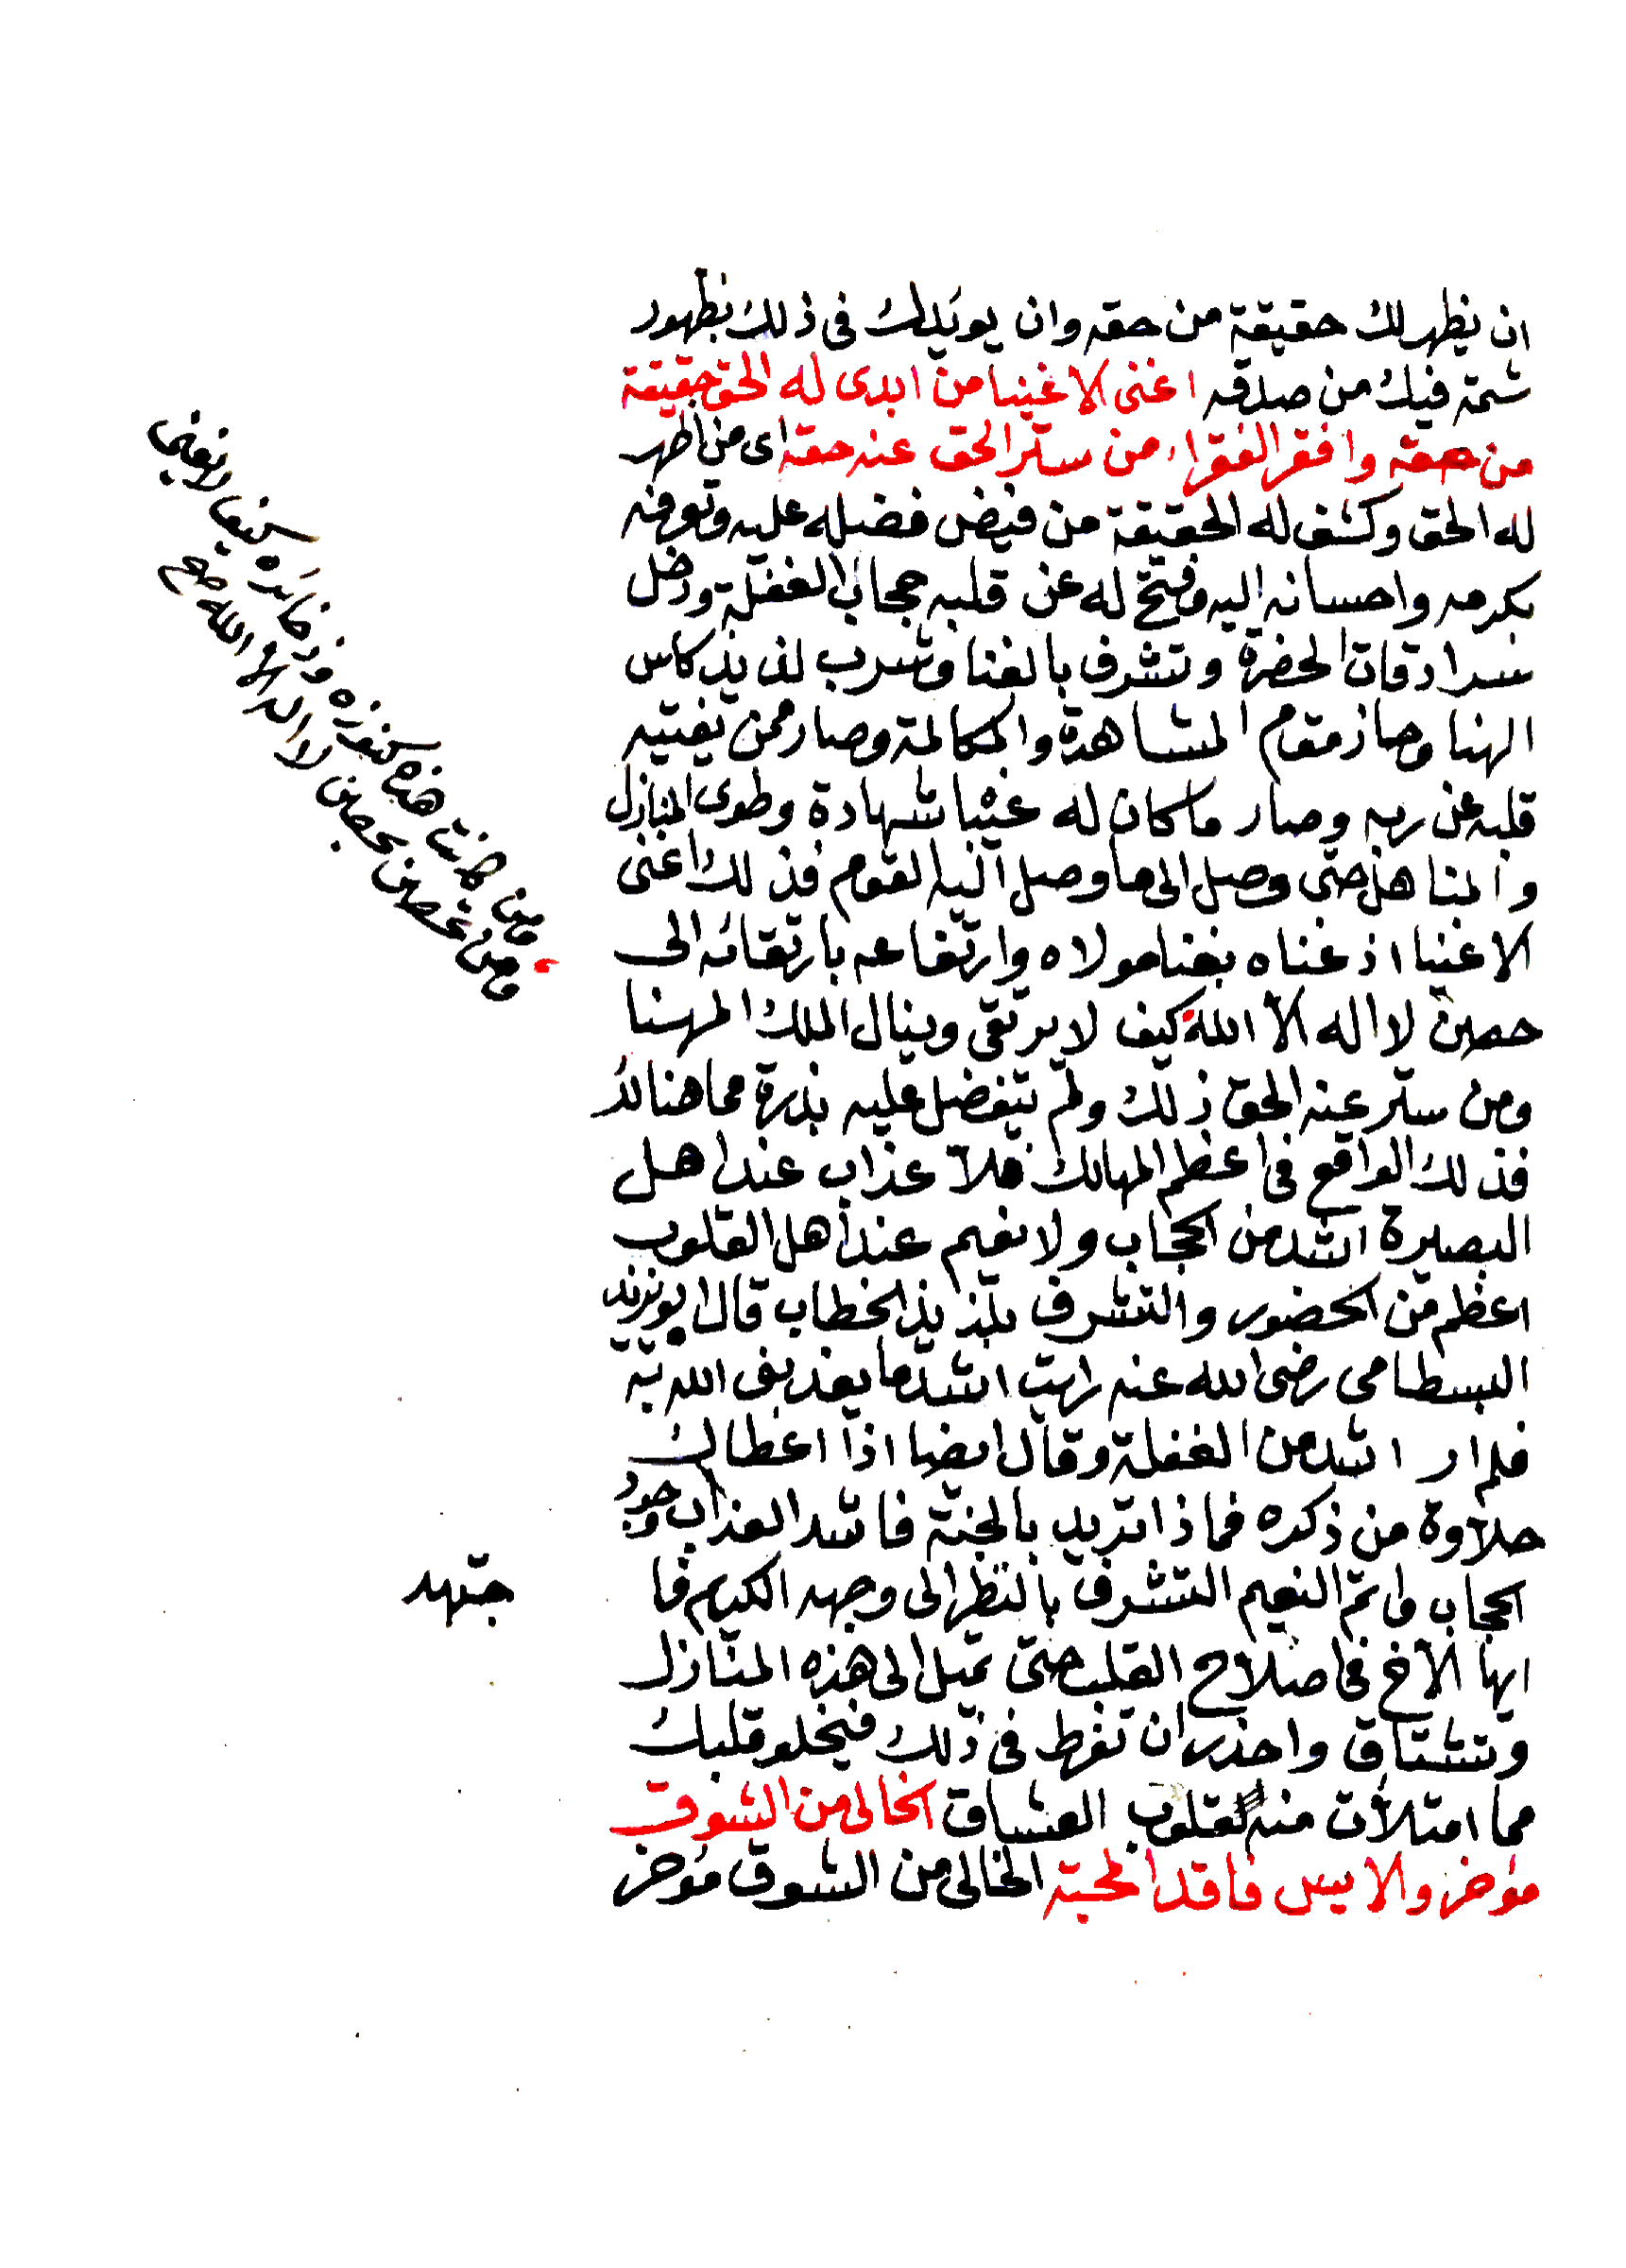 ان يظهر لك حقيقة من حقه وان يويدك فى ذلك بظهور
شمة فيك من صدقه اغنى الاغنيا من ابدى له الحق حقيقة
من حقه وافقر الفقراء من ستر الحق عنه حقه اى من اظهر
له الحق وكشف له الحقيقة من فيض فضله عليه وتعرفه
بكرمه واحسانه اليه وفتح له عن قلبه حجاب الغفلة ودخل
سرادقات الحضرة وتشرف بالغنا وشرب لذيذ كاس
الهنا وحاز مقام المشاهدة والمكالمة وصار ممن يفتيه
قلبه عن ربه وصار ما كان له غيبا شهادة وطوى المنازل
والمناهل حتى وصل الى ما وصل اليه القوم فذلك اغنى
الاغنيا اذ غناه بغنا مولاه وارتفاعه بارتقائه الى
حصن لا اله الا الله كيف لا يرتقى وينال الملك المهنا
ومن ستر عنه الحق ذلك ولم يتفضل عليه بذرة مما هنالك
فذلك الواقع فى اعظم المهالك فلا عذاب عند اهل
البصيرة اشد من الحجاب ولا نعيم عند اهل القلوب
اعظم من الحضور والتشرف بلذيذ الخطاب قال ابو يزيد
البسطامى رضى الله عنه رايت اشد ما يعذبنى الله به
فلم ار اشد من الغفلة وقال ايضا اذا اعطاك
حلاوة من ذكره فماذا تريد بالجنة فاشد العذاب وجود
الحجاب واتم النعيم التشرف بالنظر الى وجهه الكريم فا
جتهد
ايها الاخ فى اصلاح القلب حتى تميل الى هذه المنازل
وتشتاق واحذر ان تفرط فى ذلك فيخلو قلبك
مما امتلأت منه قلوب العشاق الخالى من الشوق
مؤخر والايس فاقد المحبة الخالى من الشوق مؤخر
ومن كانت هذه كنوزه
ومن تحصن بحصن لا اله الا الله